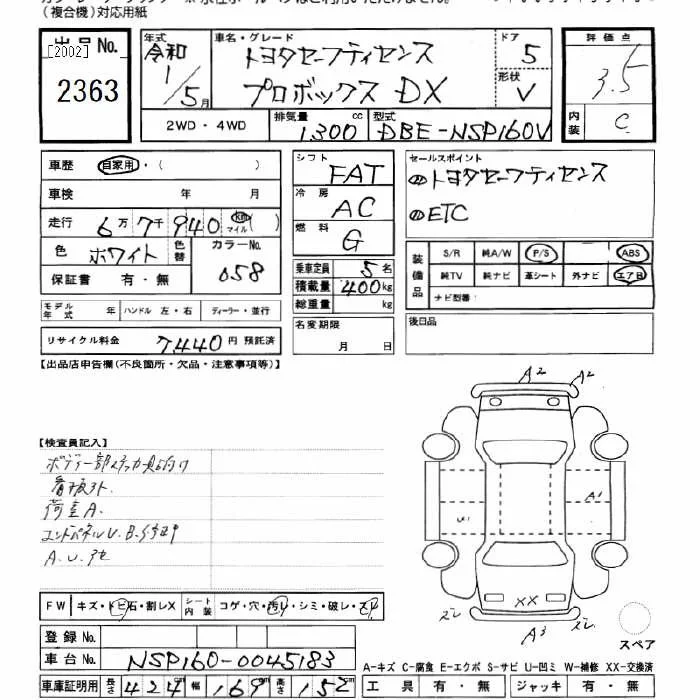 (複合機)対応用紙
出品No.
[2002]
2363
年式 令和 1/5月
車名・グレード トヨタセーフティセンス プロボックス DX
ドア 5
形状 V
2WD・4WD
排気量 1300 cc
型式 DBE-NSP160V
評価点 3.5
内装 C
車歴 自家用・( )
車検 年 月
走行 6万7千940 km マイル( )
色 ホワイト 色替 カラーNo. 058
保証書 有・無
シフト FAT
冷房 AC
燃料 G
乗車定員 5名
積載量 400kg
総重量 kg
セールスポイント
トヨタセーフティセンス
ETC
装備品 S/R 純A/W P/S ABS
純TV 純ナビ 革シート 外ナビ エアB
ナビ型番:
モデル年式 年 ハンドル 左・右 ディーラー・並行
リサイクル料金 7440円 預託済
名変期限 月 日
後日品
【出品店申告欄(不良箇所・欠品・注意事項等)】
【検査員記入】
荷室A.
A2 A2
A1
U1
XX
A3
スペア
FW キズ・トビ石・割レX シート内装 コゲ・穴・汚レ・シミ・破レ・スレ
登録No.
車台No. NSP160-0045183
車庫証明用 長さ 424cm 幅 169cm 高さ 152cm
A-キズ C-腐食 E-エクボ S-サビ U-凹ミ W-補修 XX-交換済
工具 有・無 ジャッキ 有・無